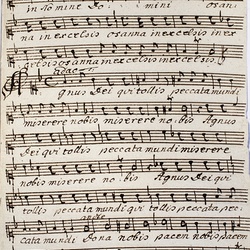 in No mine Do mini osan
na in excelsis osanna in excelsis in ex
osanna in excelsis in excelsis
Agnus Dei qui tollis peccata mundi
miserere nobis miserere no bis Agnus
Dei qui tollis peccata mundi miserere
nobis miserere no bis Agnus Dei qui
tollis peccata mundi qui tollis peccata pec
cata mundi Dona nobis pacem nobis pacem